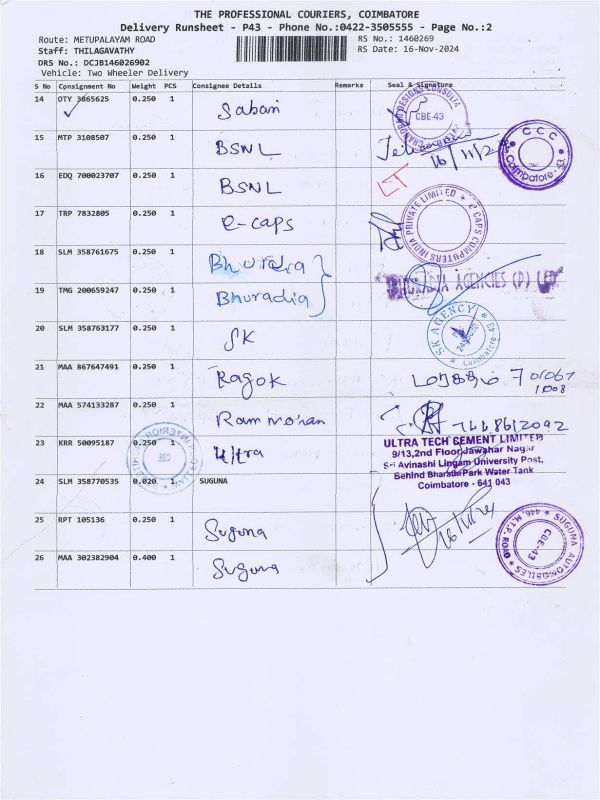 THE PROFESSIONAL COURIERS, COIMBATORE
Delivery Runsheet - P43 - Phone No.:0422-3505555 - Page No.:2
Route: METUPALAYAM ROAD RS No.: 1460269
Staff: THILAGAVATHY RS Date: 16-Nov-2024
DRS No.: DCJB146026902
Vehicle: Two Wheeler Delivery
S No Consignment No Weight PCS Consignee Details Remarks Seal & Signature
14 OTY 3865625 0.250 1 Sabari
CBE-43
15 MTP 3108507 0.250 1 BSNL
16/11/2
C C C
Coimbatore - 43
16 EDQ 700023707 0.250 1 BSNL
LT
17 TRP 7832805 0.250 1 e-caps
2 CAPS COMPUTERS INDIA PRIVATE LIMITED
18 SLM 358761675 0.250 1 Bhuradia
19 TMG 200659247 0.250 1 Bhuradia
BHURADIA AGENCIES (P) LTD
20 SLM 358763177 0.250 1 SK
SK AGENCY
Coimbatore-43
21 MAA 867647491 0.250 1 Ragok
22 MAA 574133287 0.250 1 Ram mohan
23 KRR 50095187 0.250 1 Ultra
ULTRA TECH CEMENT LIMITED
9/13,2nd Floor,Jawahar Nagar
Sri Avinashi Lingam University Post,
Behind Bharathi Park Water Tank
Coimbatore - 641 043
24 SLM 358770535 0.020 1 SUGUNA
25 RPT 105136 0.250 1 Suguna
26 MAA 302382904 0.400 1 Suguna
SUGUNA AUTOMOBILES
446, M.T.P. ROAD
CBE-43